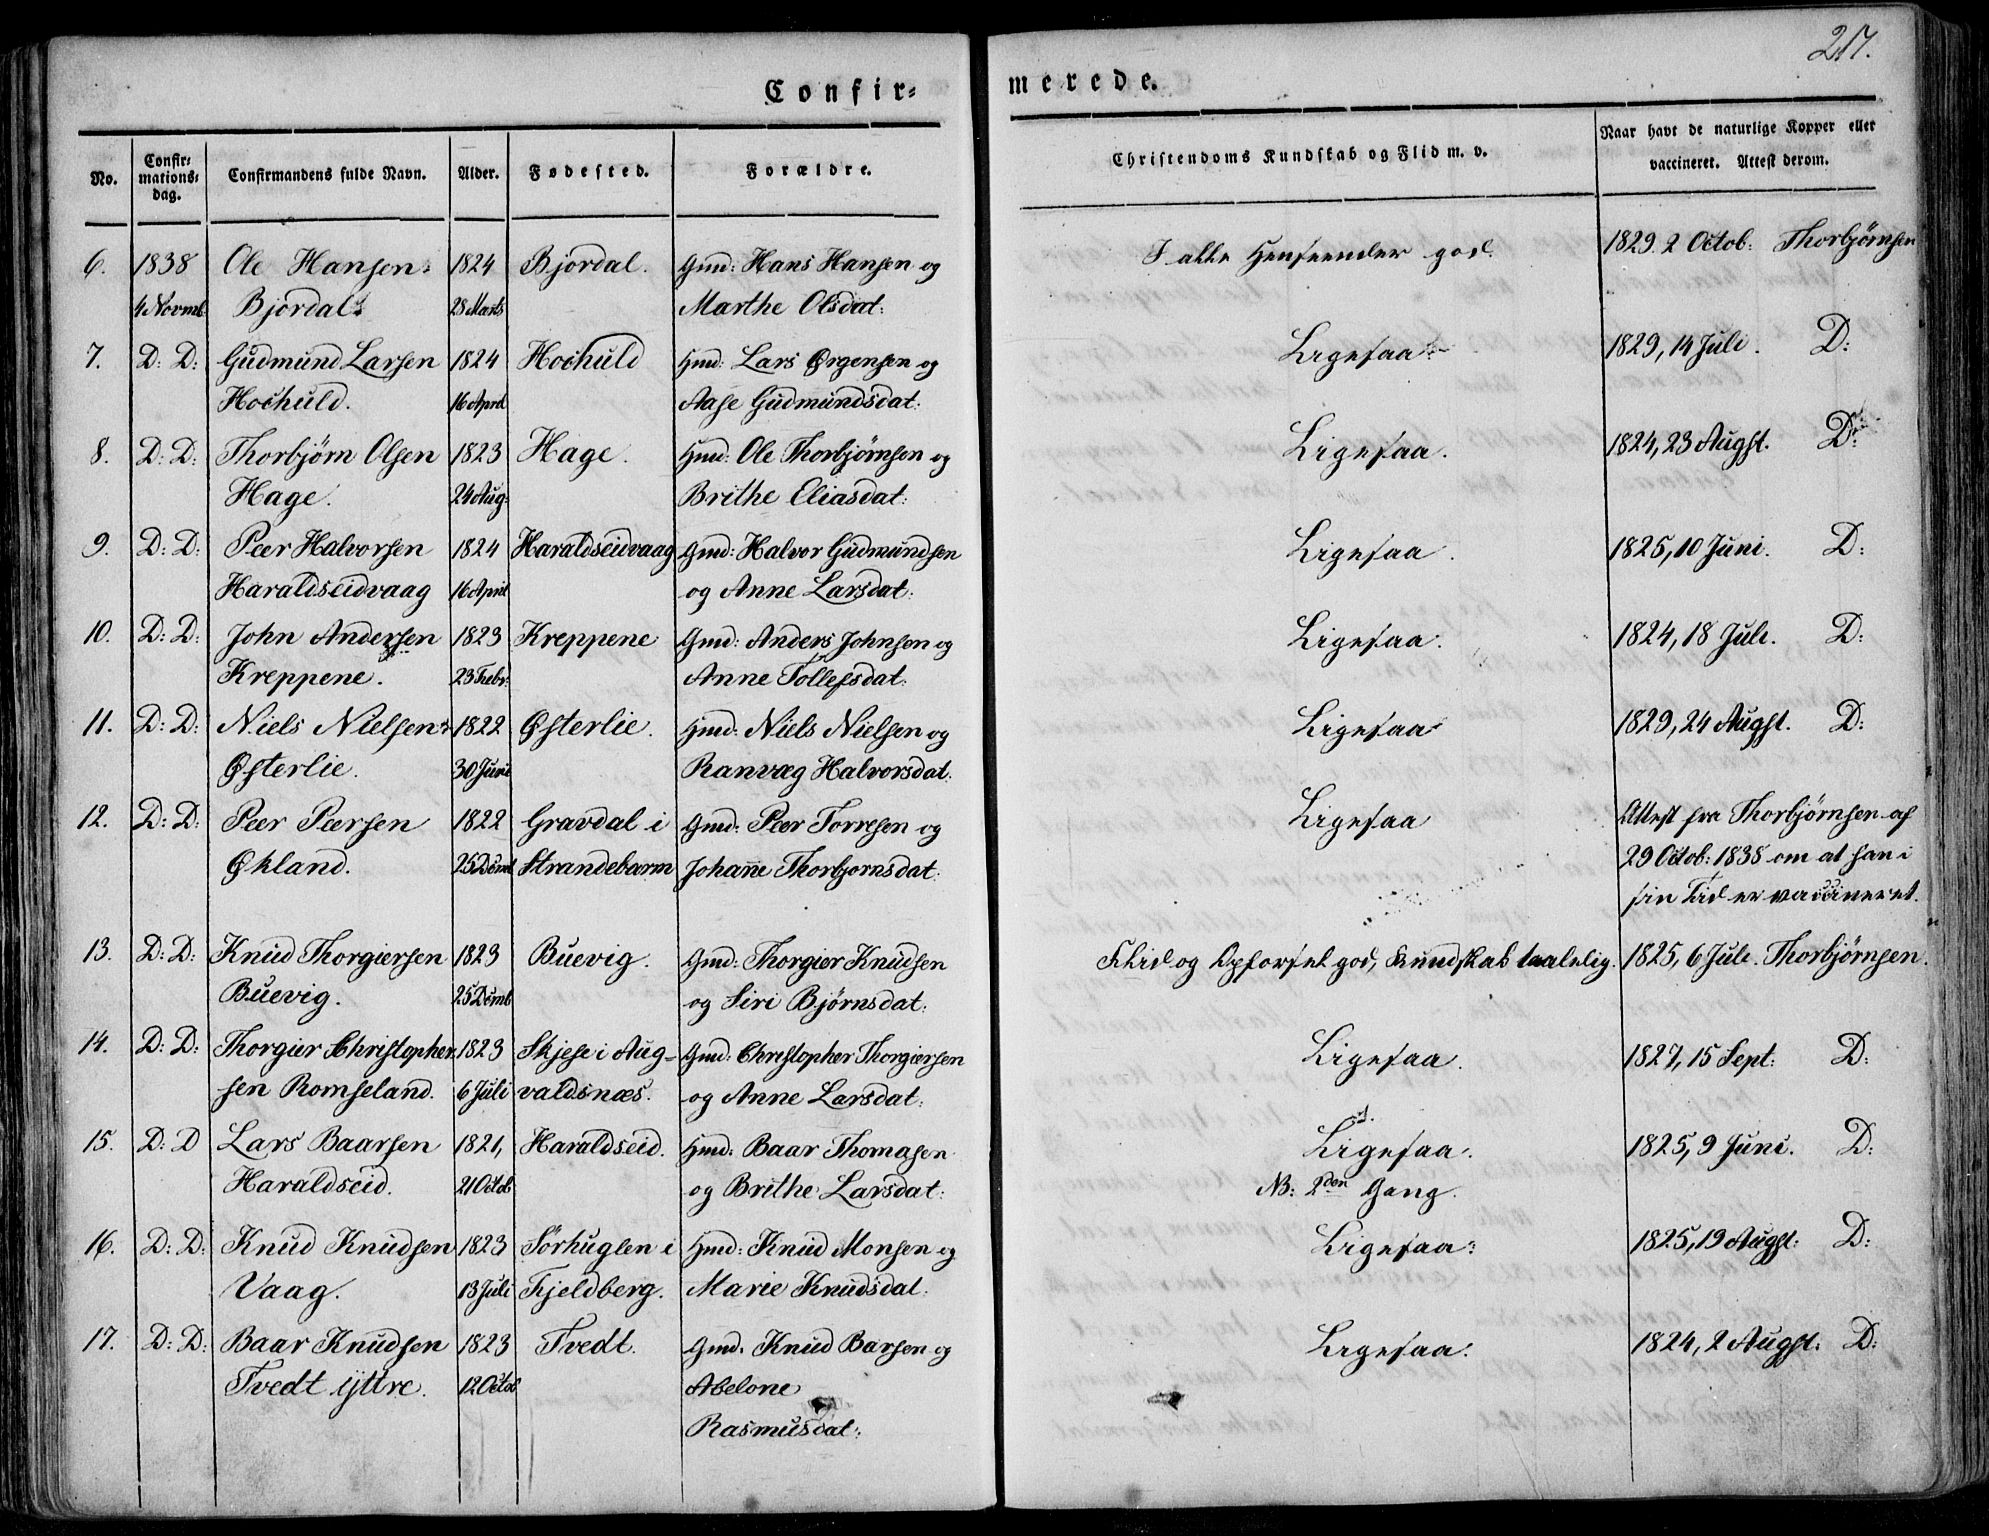 217.
Confir-
merede.
No.
Confir-
mations-
dag.
Confirmandens fulde Navn.
Alder.
Fødested.
Forældre.
Christendoms Kundskab og Flid m. v.
Naar havt de naturlige Kopper eller
vaccineret. Attest derom.
6. 1838 Ole Hansen Bjordal. Gmd: Hans Hansen og I alle Henseender god. 1829. 2 Octob: Thorbjørnsen
4 Novmb. Bjordal. 1824 28 Marts Marthe Olsdat:
7. D: D: Gudmund Larsen 1824 Hochuld Hmd: Lars Ørgensen og Ligesaa 1829, 14 Juli. D:
Hochuld. 16 April Aase Gudmundsdat:
8. D: D: Thorbjørn Olsen 1823 Hage. Hmd: Ole Thorbjørnsen og Ligesaa. 1824, 23 Augst. D:
Hage. 24 Aug: Brithe Eliasdat:
9. D: D: Peer Halvorsen 1824 Haraldseidvaag Gmd: Halvor Gudmundsen Ligesaa. 1825, 10 Juni. D:
Haraldseidvaag 16 April og Anne Larsdat:
10. D: D: John Andersen 1823 Kreppene Gmd: Anders Johnsen og Ligesaa. 1824, 18 Juli. D:
Kreppene. 23 Febr: Anne Tollefsdat:
11. D: D: Niels Nielsen 1822 Østerlie. Hmd: Niels Nielsen og Ligesaa 1829, 24 Augst. D:
Østerlie. 30 Juni Ranvæg Halvorsdat:
12. D: D: Peer Peersen 1822 Gravdal i Gmd: Peer Torresen og Ligesaa Attest fra Thorbjørnsen af
Økland. 25 Decmb Strandebarm Johanne Thorbjornsdat: 29 Octob: 1838 om at han i
sin Tid er vaccineret.
13. D: D: Knud Thorgiersen 1823 Buevig. Gmd: Thorgier Knudsen Flid og Opførsel god, Kundskab taalelig. 1825, 6 Juli. Thorbjørnsen.
Buevig. 25 Decmb og Siri Bjørnsdat:
14. D: D: Thorgier Christopher 1823 Skjese i Aug- Gmd: Christopher Thorgiersen Ligesaa. 1827, 15 Sept: D:
sen Romseland. 6 Juli valdsnæs. og Anne Larsdat:
15. D: D Lars Baarsen 1821, Haraldseid. Hmd: Baar Thomasen Ligesaa. 1825, 9 Juni. D:
Haraldseid. 21 Octob og Brithe Larsdat: NB: 2den Gang.
16. D: D: Knud Knudsen 1823 Sørhuglen i Hmd: Knud Monsen og Ligesaa: 1825, 19 Augst: D:
Vaag. 13 Juli Fjeldberg. Marie Knudsdat:
17. D: D: Baar Knudsen 1823 Tvedt. Gmd: Knud Barsen og Ligesaa: 1824, 2 Augst: D:
Tvedt yttre. 12 Octob Abelone
Rasmusdat: